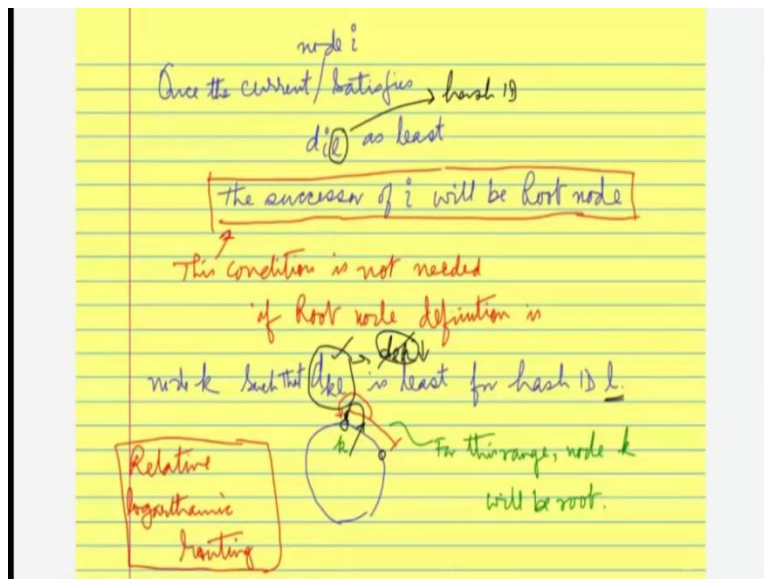 node i
Once the current / satisfies → hash ID
d i l as least
The successor of i will be Root node
This condition is not needed
if Root node definition is
node k such that d kl is least for hash ID l.
k
For this range, node k
will be root.
Relative
logarthamic
Routing